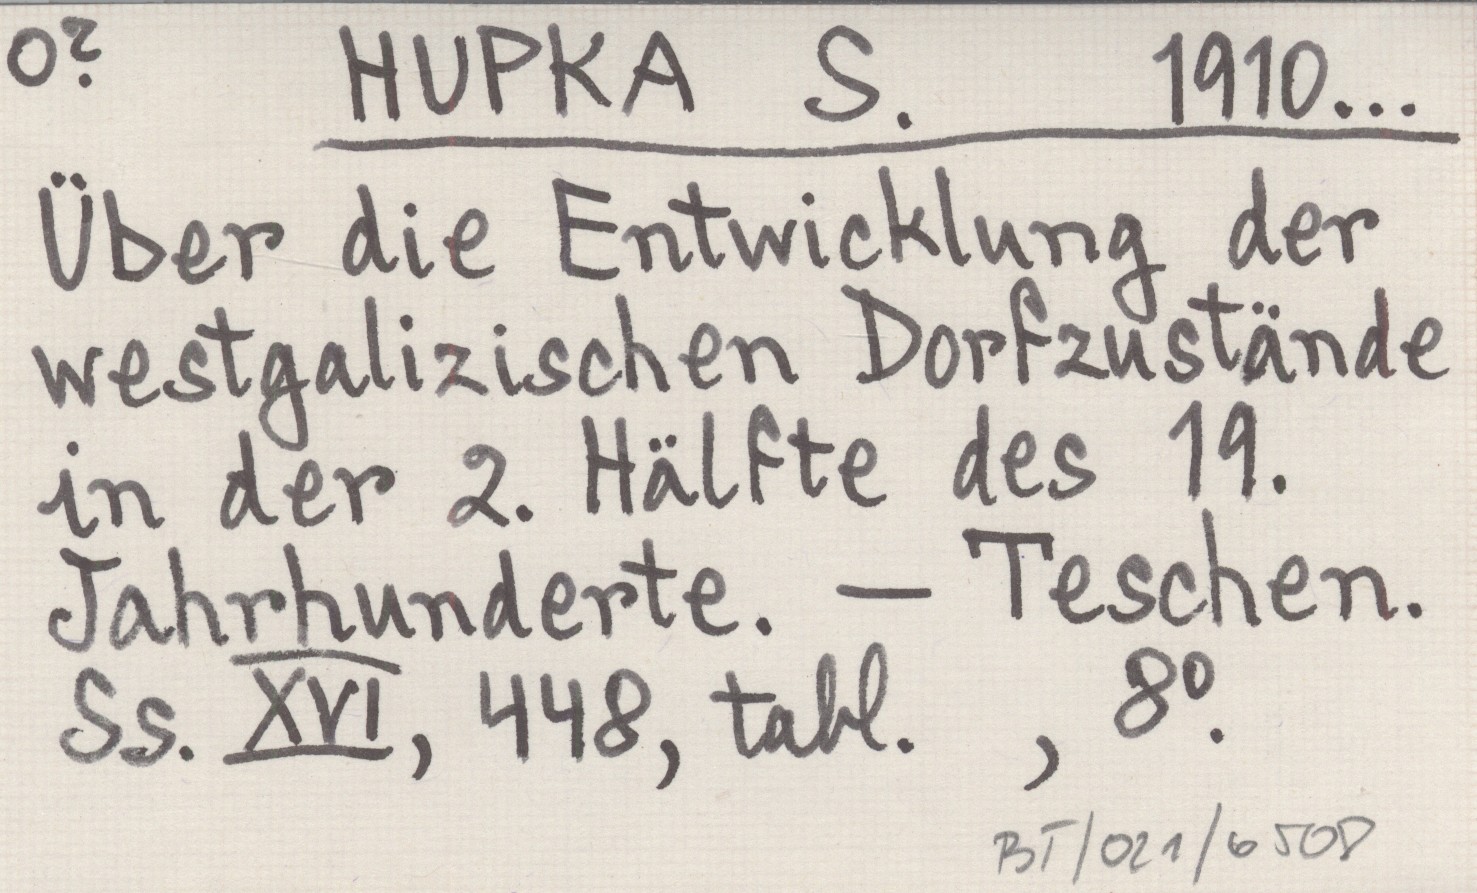 O? HUPKA S. 1910...
Über die Entwicklung der
westgalizischen Dorfzustände
in der 2. Hälfte des 19.
Jahrhunderte. — Teschen.
Ss. XVI, 448, tabl. , 8º.
BT/021/650D